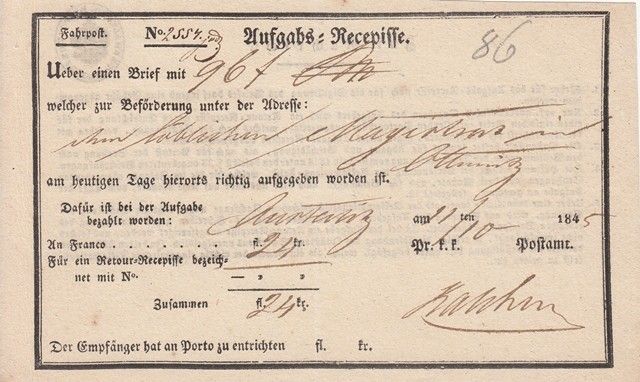 Fahrpost. No. 2554. Aufgabs-Recepisse. 86
Ueber einen Brief mit 96 f
welcher zur Beförderung unter der Adresse:
löblichen Magistrat in
Ollmütz
am heutigen Tage hierorts richtig aufgegeben worden ist.
Dafür ist bei der Aufgabe
bezahlt worden: Austerlitz am 11 ten /10 1845
An Franco . . . . . . . fl. 24 kr. Pr. k. k. Postamt.
Für ein Retour-Recepisse bezeich-
net mit No. — „ „
Zusammen fl. 24 kr.
Der Empfänger hat an Porto zu entrichten fl. kr.